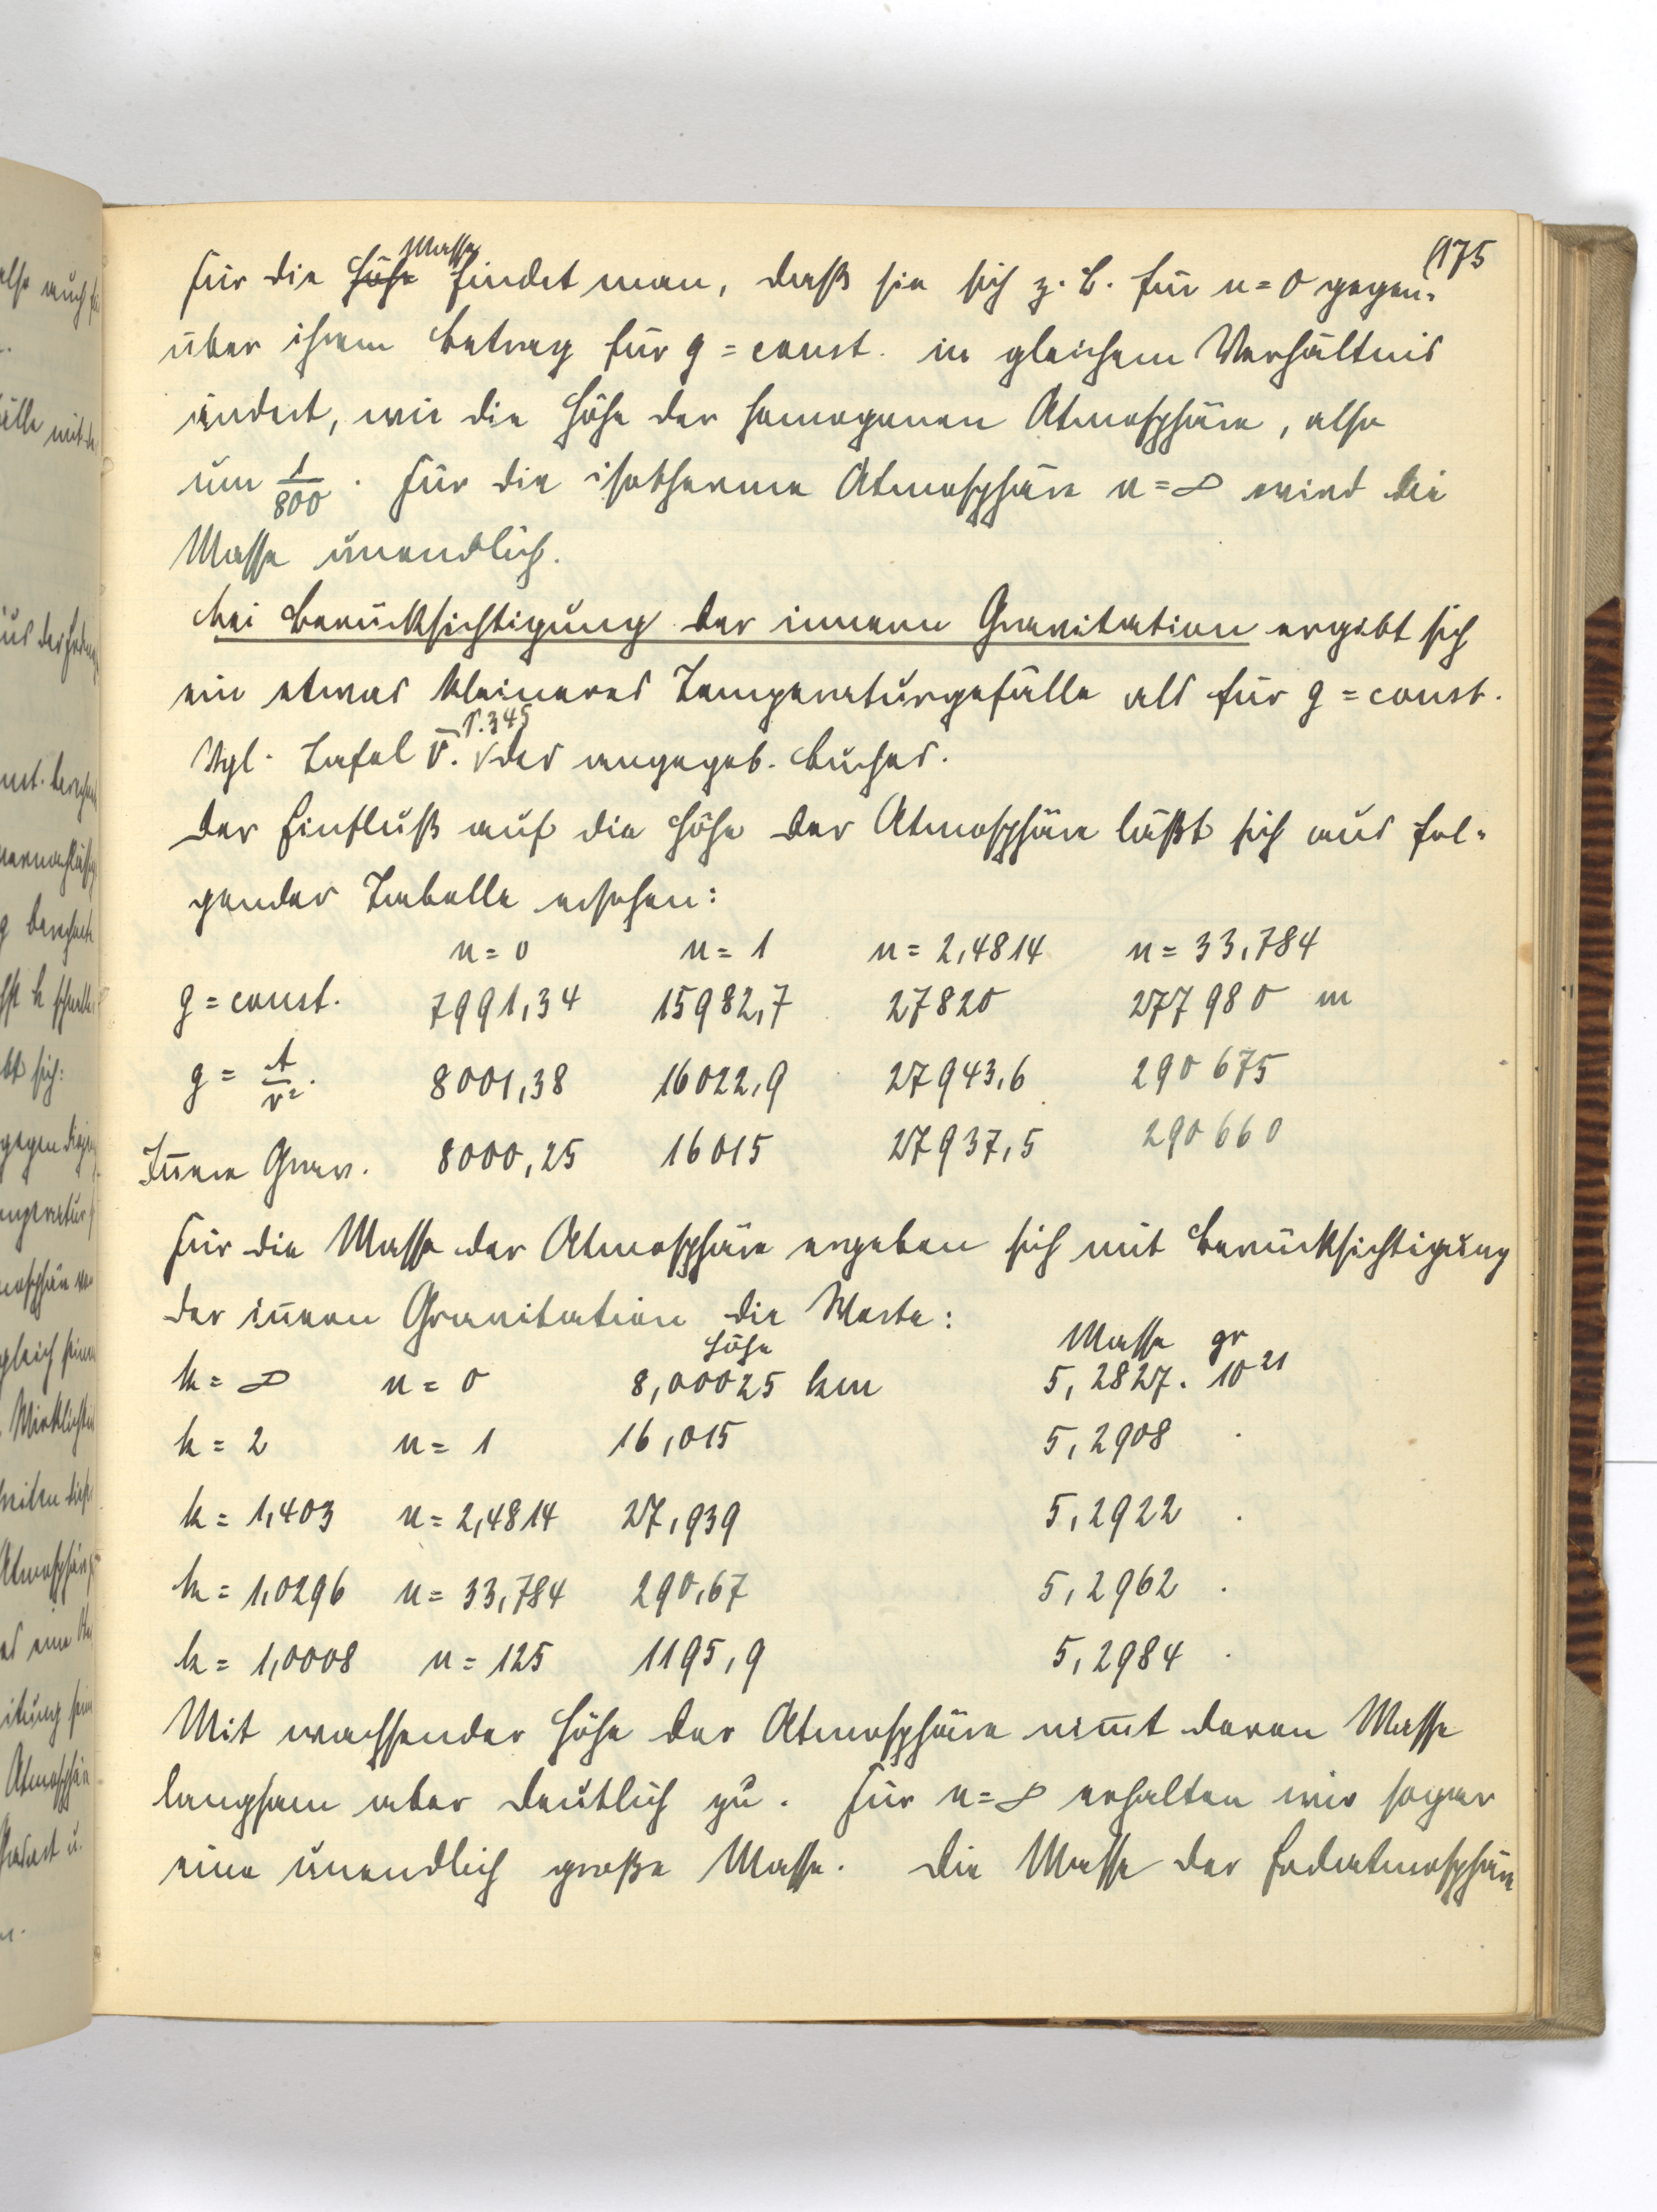 175
Für die Höhe Masse findet man, daß sie sich z. B. für n = 0 gegen-
über ihrem Betrag für g = const. in gleichem Verhältnis
ändert, wie die Höhe der homogenen Atmosphäre, also
um 1/800. Für die isotherme Atmosphäre n = ∞ wird die
Masse unendlich.
Bei Berücksichtigung der innern Gravitation ergibt sich
ein etwas kleineres Temperaturgefälle als für g = const.
Vgl. Tafel V. S. 345 des angegeb. Buches.
Der Einfluß auf die Höhe der Atmosphäre läßt sich aus fol-
gender Tabelle ersehen:
n = 0 n = 1 n = 2,4814 n = 33,784
g = const. 7991,34 15982,7 27820 277980 m
g = A/r². 8001,38 16022,9 27943,6 290675
Iñere Grav. 8000,25 16015 27937,5 290660
Für die Masse der Atmosphäre ergeben sich mit Berücksichtigung
der iñern Gravitation die Werte:
Höhe Masse gr
k = ∞ n = 0 8,00025 km 5,2827 . 10²¹
k = 2 n = 1 16,015 5,2908 .
k = 1,403 n = 2,4814 27,939 5,2922 .
k = 1,0296 n = 33,784 290,67 5,2962 .
k = 1,0008 n = 125 1195,9 5,2984 .
Mit wachsender Höhe der Atmosphäre nim̄t deren Masse
langsam aber deutlich zu. Für n = ∞ erhalten wir sogar
eine unendlich große Masse. Die Masse der Erdatmosphäre